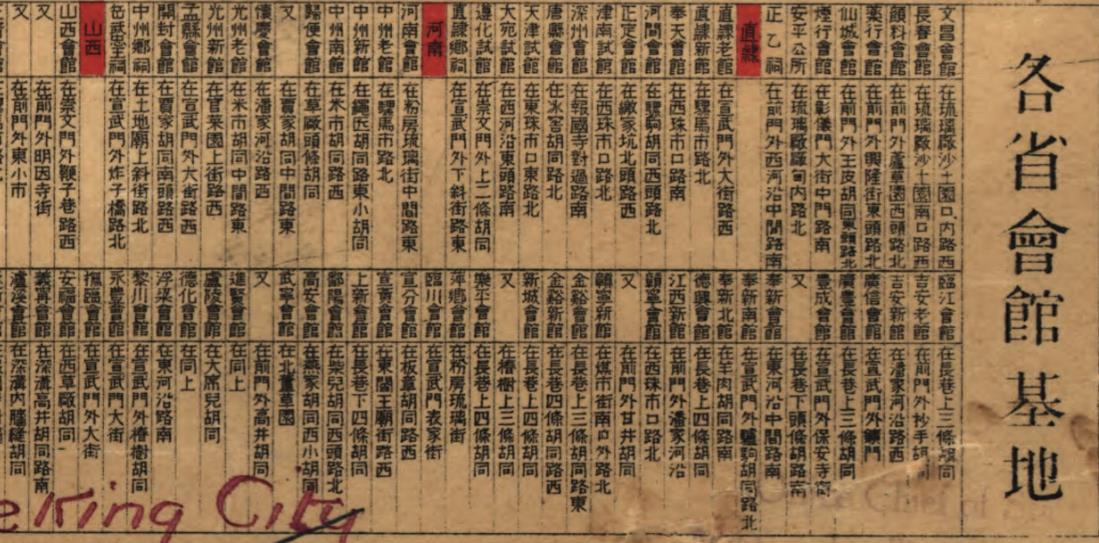 各省會館基地
文昌會館 在琉璃廠沙土園口內路西
長春會館 在琉璃廠沙土園南口路西
顏料會館 在前門外蘆草園西頭路北
藥行會館 在前門外興隆街東頭路北
仙城會館 在前門外王皮胡同東頭路北
煙行會館 在彰儀門大街中門路南
安平公所 在琉璃廠廠甸內路北
正乙祠 在前門外西河沿中間路南
直隸
直隸老館 在宣武門外大街路西
直隸新館 在騾馬市路北
奉天會館 在西珠市口路南
河間會館 在騾駒胡同西頭路北
正定會館 在家坑北頭路西
津南試館 在西珠市口路北
深州會館 在報國寺對過路南
唐縣會館 在氷窖胡同路北
天津試館 在東珠市口東路北
大宛試館 在西河沿東頭路南
遵化試館 在崇文門外上二條胡同
直隸鄉祠 在宣武門外下斜街路東
河南
河南會館 在粉房琉璃街中間路東
中州老館 在騾馬市路北
中州新館 在繩匠胡同路東小胡同
中州南館 在米市胡同路西
歸德會館 在草廠頭條胡同
又 在賈家胡同中間路東
懷慶會館 在潘家河沿路西
光州老館 在米市胡同中間路東
光州新館 在官菜園上街路西
孟縣會館 在宣武門外大街路西
開封會館 在賈家胡同南頭路西
中州鄉祠 在土地廟上斜街路北
岳武定祠 在宣武門外炸子橋路北
山西
山西會館 在崇文門外鞭子巷路西
又 在前門外明因寺街
又 在前門外東小市
臨江會館 在長巷上三條胡同
吉安老館 在前門外抄手胡同
吉安新館 在潘家河沿路西
廣信會館 在宣武門外
廣豐會館 在長巷上三條胡同
豐成會館 在宣武門外保安寺街
又 在長巷下頭條胡路南
奉新會館 在東河沿中間路南
奉新南館 在宣武門外驢駒胡同路北
奉新北館 在羊肉胡同路南
德興會館 在長巷上四條胡同
江西新館 在前門外潘家河沿
贛寧會館 在西珠市口路北
又 在前門外甘井胡同
贛寧新館 在煤市街南口外路北
金谿會館 在長巷上三條胡同路東
金谿新館 在長巷四條胡同路西
新城會館 在長巷上四條胡同
又 在椿樹上三條胡同
樂平會館 在長巷上四條胡同
萍鄉會館 在粉房琉璃街
臨川會館 在宣武門表家街
宣分會館 在板章胡同路西
宜黃會館 在東閻王廟街路西
上新會館 在長巷下四條胡同
鄱陽會館 在柴兒胡同西頭路北
高安會館 在燕家胡同西小胡同
武寧會館 在北蘆草園
又 在前門外高井胡同
進賢會館 在同上
廬陵會館 在大席兒胡同
德化會館 在同上
浮梁會館 在東河沿路南
黎川會館 在宣武門外椿樹胡同
永豐會館 在宣武門大街
撫臨會館 在宣武門外大街
安福會館 在西草廠胡同
義寧會館 在深溝高井胡同路南
King City